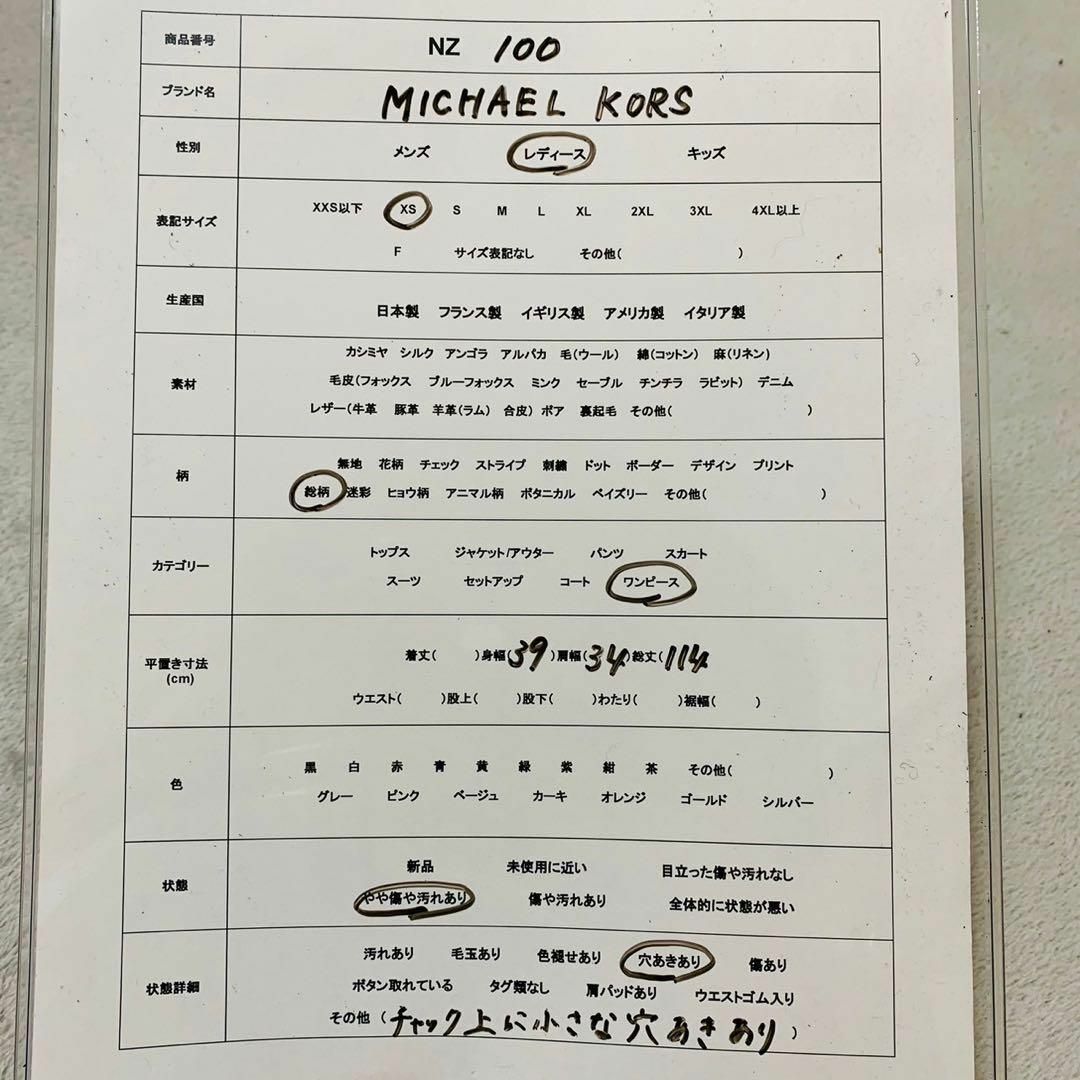 商品番号 NZ 100
ブランド名 MICHAEL KORS
性別 メンズ レディース キッズ
XXS以下 XS S M L XL 2XL 3XL 4XL以上
表記サイズ
F サイズ表記なし その他( )
生産国 日本製 フランス製 イギリス製 アメリカ製 イタリア製
カシミヤ シルク アンゴラ アルパカ 毛(ウール) 綿(コットン) 麻(リネン)
素材 毛皮(フォックス ブルーフォックス ミンク セーブル チンチラ ラビット) デニム
レザー(牛革 豚革 羊革(ラム) 合皮) ボア 裏起毛 その他( )
無地 花柄 チェック ストライプ 刺繍 ドット ボーダー デザイン プリント
柄
総柄 迷彩 ヒョウ柄 アニマル柄 ボタニカル ペイズリー その他( )
トップス ジャケット/アウター パンツ スカート
カテゴリー
スーツ セットアップ コート ワンピース
平置き寸法 着丈( )身幅(39)肩幅(34)総丈(114
(cm)
ウエスト( )股上( )股下( )わたり( )裾幅( )
黒 白 赤 青 黄 緑 紫 紺 茶 その他( )
色
グレー ピンク ベージュ カーキ オレンジ ゴールド シルバー
新品 未使用に近い 目立った傷や汚れなし
状態
やや傷や汚れあり 傷や汚れあり 全体的に状態が悪い
汚れあり 毛玉あり 色褪せあり 穴あきあり 傷あり
状態詳細 ボタン取れている タグ類なし 肩パッドあり ウエストゴム入り
その他 (チャック上に小さな穴あきあり)